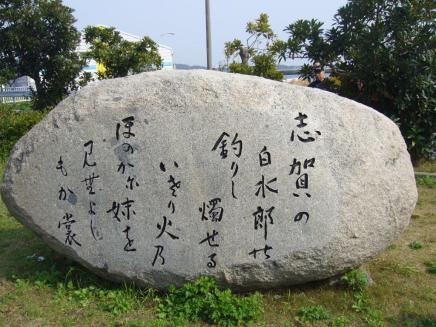 志賀の
白水郎の
釣りし
燭せる
いさり火乃
ほのか尓妹を
見無よし
もか裳